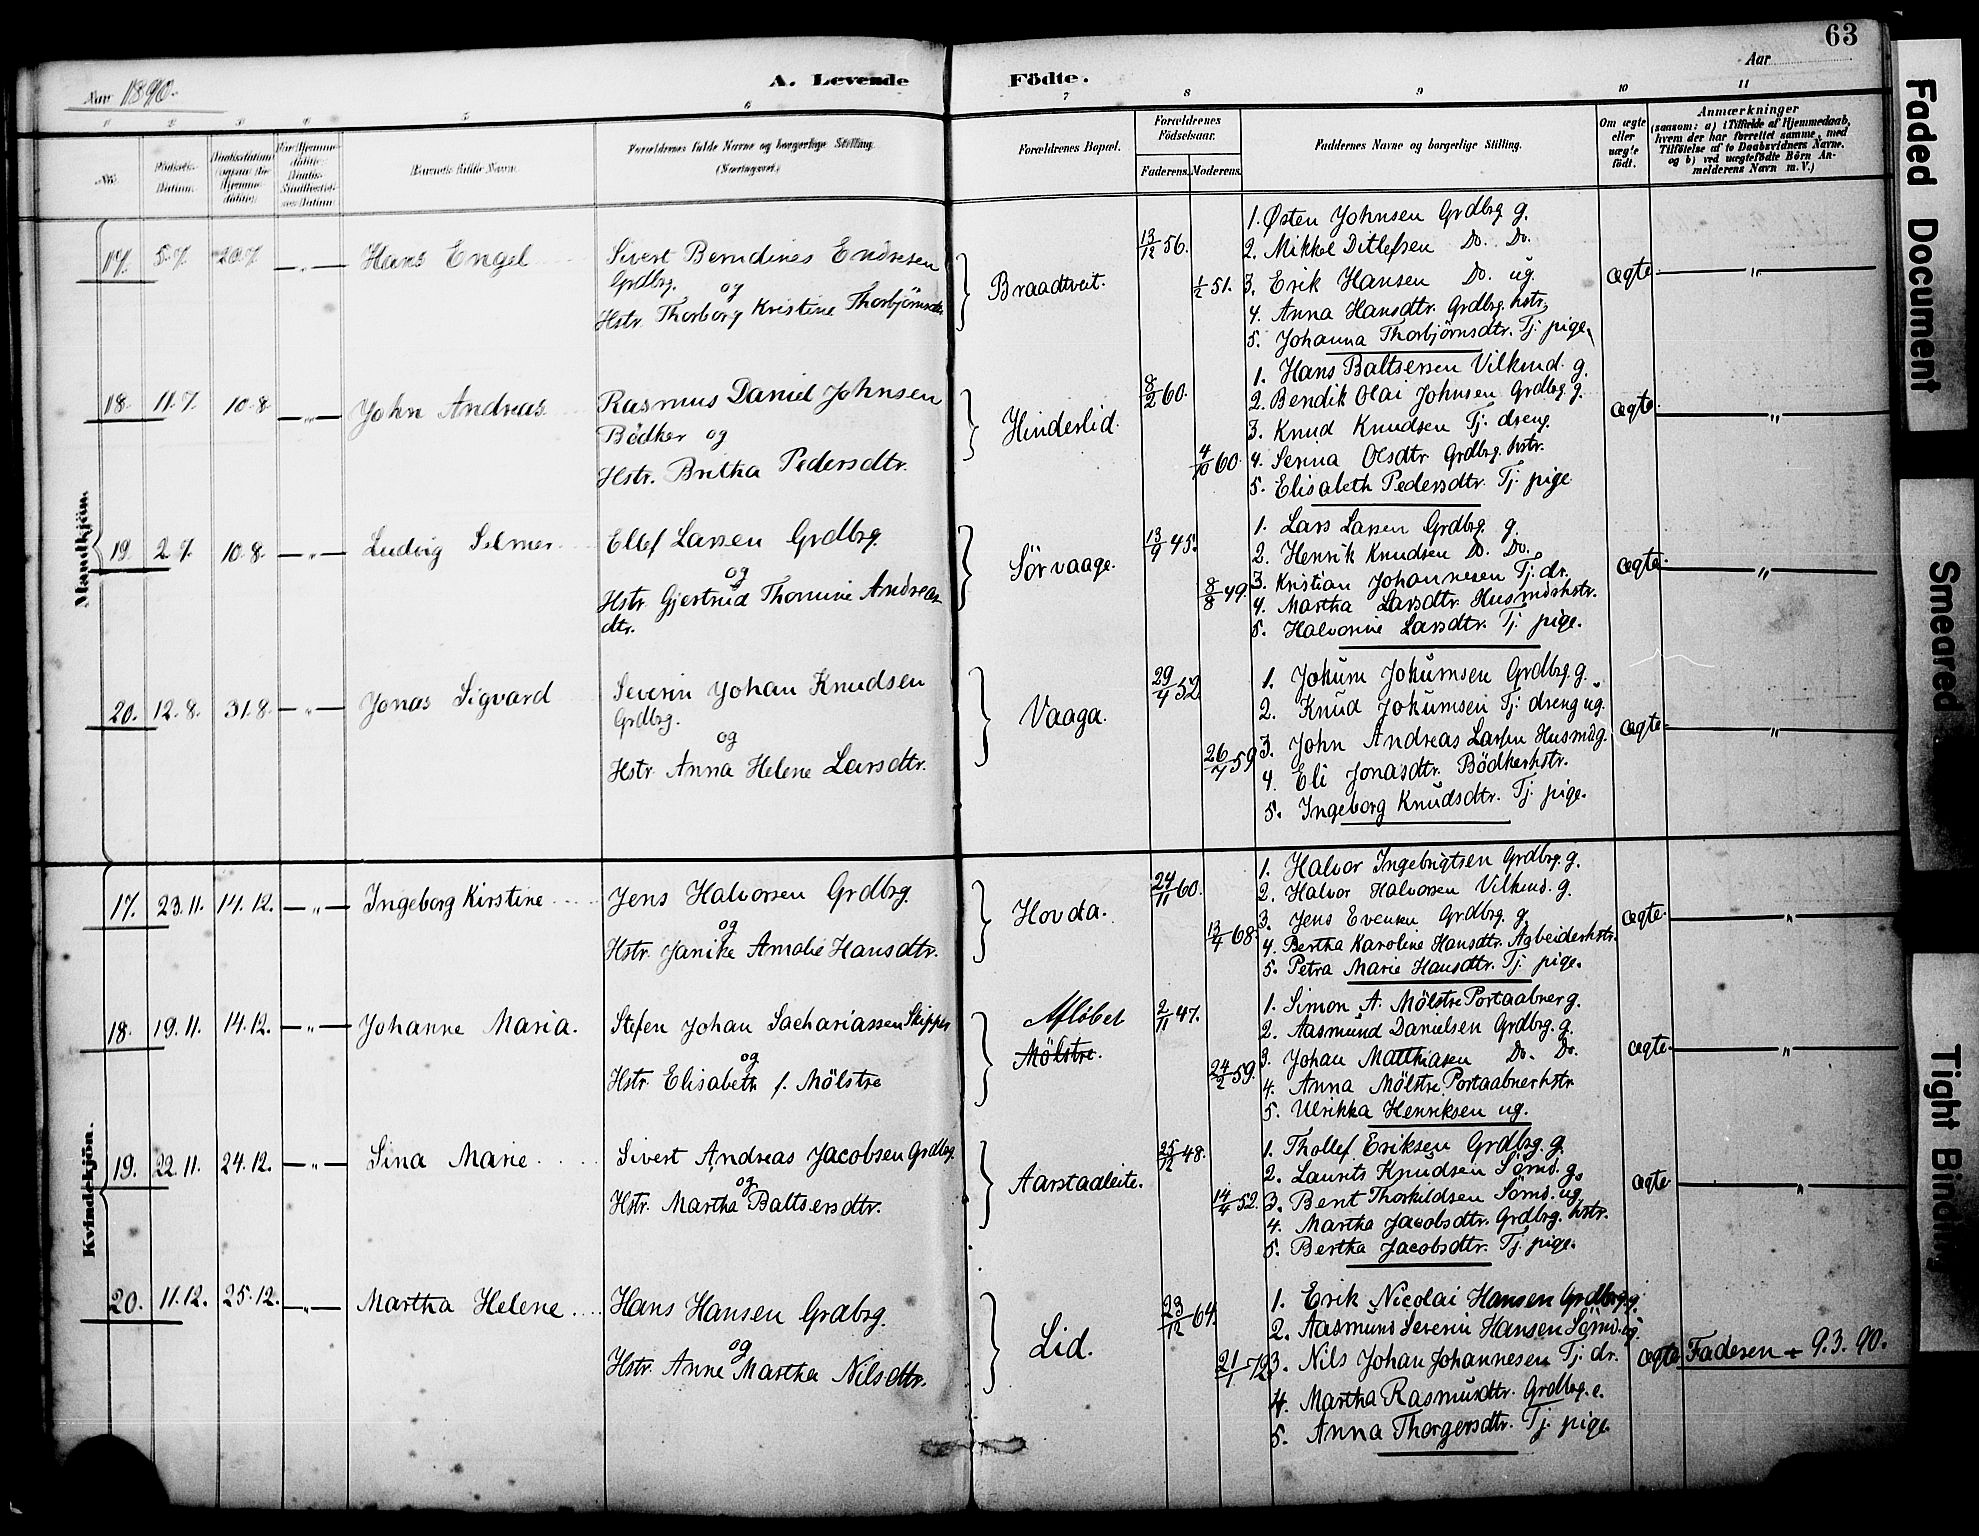 63
Aar 1890.
A. Levende Födte.
Aar
1 2 3 4 5 6 7 8 9 10 11
No.
Fødsels-Datum.
Barnets fulde Navn.
Forældrenes fulde Navne og borgerlige Stilling.
(Næringsvei.)
Forældrenes Bopæl.
Forældrenes Födselsaar.
Faderens. Moderens.
Faddernes Navne og borgerlige Stilling.
Om ægte eller uægte födt.
Anmærkninger
(saasom: a) i Tilfælde af Hjemmedaab,
hvem der har forrettet samme, med
Tilföielse af to Daabsvidners Navne.
og b) ved uægtefödte Börn An-
melderens Navn m. V.)
Mandkjön.
17. 5.7. 20.7 — „ — Hans Engel
Sivert Berndines Endresen
Grdbrg. og
Hstr. Thorborg Kristine Thorbjörnsdtr
Braadtveit.
13/12 56.
1/2 51.
1. Østen Johnsen Grdbrg g.
2. Mikkel Ditlefsen Do. Do.
3. Erik Hansen Do. ug.
4. Anna Hansdtr. Grdbrg. hstr.
5. Johanna Thorbjörnsdtr. Tj. pige.
ægte — „ —
18. 11.7. 10.8 — „ — John Andreas
Rasmus Daniel Johnsen
Bödker og
Hstr. Britha Pedersdtr.
Hinderlid.
8/2 60.
4/10 60.
1. Hans Baltsersen Vilkend. g.
2. Bendik Olai Johnsen Grdbrg. g.
3. Knud Knudsen Tj. dreng.
4. Serina Olsdtr Grdbrg. hstr.
5. Elisabeth Pedersdtr. Tj. pige
ægte. „
19 2.7. 10.8. — „ — Ludvig Selmer
Ellef Larsen Grdbrg.
og
Hstr. Gjertrud Thomine Andreas
dtr.
Sörvaage.
13/9 45.
8/8 49
1. Lars Larsen Grdbrg. g.
2. Henrik Knudsen Do. Do.
3. Kristian Johannesen Tj. dr.
4. Martha Larsdtr. Husmdshstr.
5. Halvorine Larsdtr. Tj. pige.
ægte. „
20. 12.8. 31.8. — „ — Jonas Sigvard
Severin Johan Knudsen
Grdbrg.
og
Hstr. Anna Helene Larsdtr.
Vaaga.
29/4 52
26/7 59
1. Jokum Jokumsen Grdbrg. g.
2. Knud Jokumsen Tj. dreng ug.
3. John Andreas Larsen Husmd g.
4. Eli Jonasdtr. Bödkerhstr.
5. Ingeborg Knudsdtr. Tj. pige.
ægte „
Kvindekjön.
17. 23.11. 14.12. — „ — Ingeborg Kirstine
Jens Halvorsen Grdbrg.
og
Hstr. Janike Amalie Hansdtr.
Hovda.
24/11 60.
13/4 68.
1. Halvor Ingebrigtsen Grdbrg. g.
2. Halvor Halvorsen Vilkend. g.
3. Jens Evensen Grdbrg. g.
4. Bertha Karoline Hansdtr. Arbeiderhstr.
5. Petra Marie Hansdtr. Tj. pige.
ægte. „
18. 19.11. 14.12. — „ — Johanne Maria.
Stefen Johan Sachariassen Skipper
og
Hstr. Elisabeth f. Mölstre
Aflöbet
Mölstre.
2/11 47.
24/2 59.
1. Simon A. Mölstre Portaabner g.
2. Aasmund Danielsen Grdbrg. g.
3. Johan Matthiasen Do. Do.
4. Anna Mölstre Portaabnerhstr.
5. Ulrikka Henriksen ug.
ægte. „
19. 22.11. 24.12. — „ — Sina Marie
Sivert Andreas Jacobsen Grdbrg.
og
Hstr. Martha Baltsersdtr.
Aarstadleite.
25/12 48.
14/4 52.
1. Thollef Eriksen Grdbrg. g.
2. Laurits Knudsen Sömd. g.
3. Bent Thorkildsen Sömd. ug.
4. Martha Jacobsdtr. Grdbrg. hstr.
5. Bertha Jacobsdtr. Tj. pige.
ægte „
20. 11.12. 25.12. — „ — Martha Helene
Hans Hansen Grdbrg.
og
Hstr. Anne Martha Nilsdtr.
Lid.
23/12 64.
21/1 72.
1. Erik Nicolai Hansen Grdbrg. g.
2. Aasmund Severin Hansen Sömd. ug.
3. Nils Johan Johannesen Tj. dr.
4. Martha Rasmusdtr. Grdbrg. e.
5. Anna Thorgersdtr. Tj. pige.
ægte Faderen + 9.3.90.
Faded Document
Smeared
Tight Binding